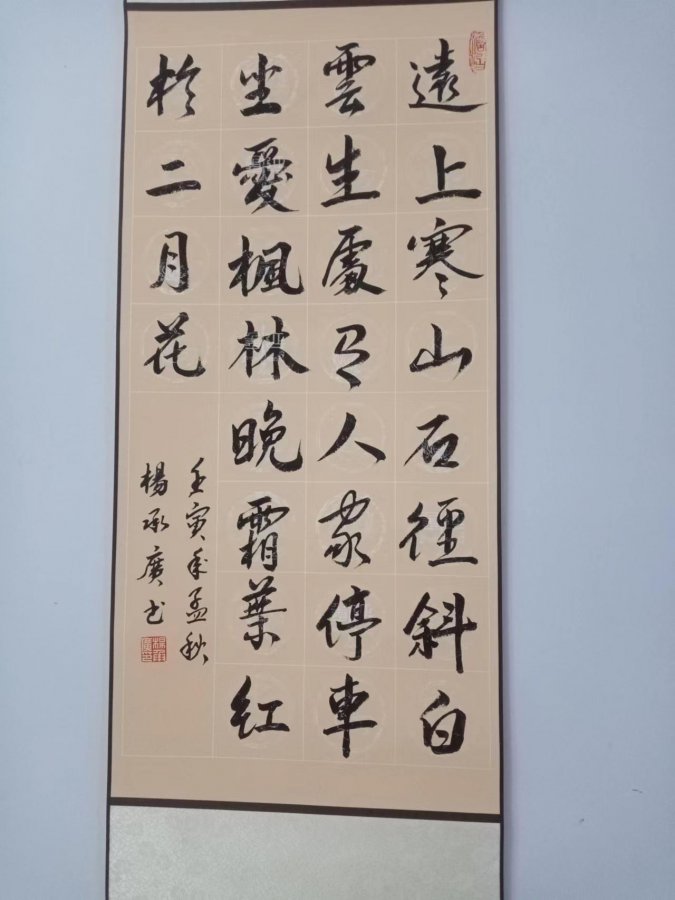 遠上寒山石徑斜白
雲生處有人家停車
坐愛楓林晚霜葉紅
於二月花
壬寅年孟秋
楊承廣书